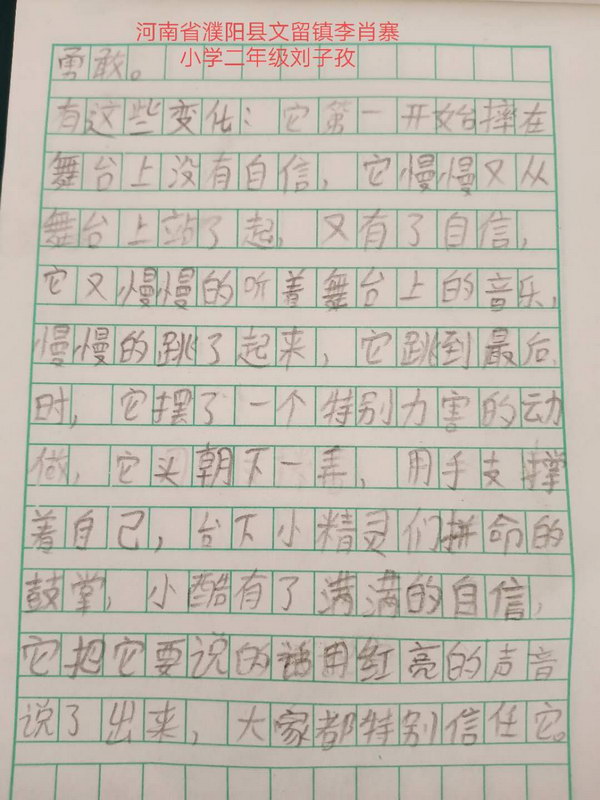 河南省濮阳县文留镇李肖寨
小学二年级刘子孜
勇敢。
有这些变化:它第一开始摔在
舞台上没有自信，它慢慢又从
舞台上站了起，又有了自信，
它又慢慢的听着舞台上的音乐，
慢慢的跳了起来，它跳到最后
时，它摆了一个特别力害的动
做，它头朝下一弄，用手支撑
着自己，台下小精灵们拼命的
鼓掌，小酷有了满满的自信，
它把它要说的话用红亮的声音
说了出来，大家都特别信任它。